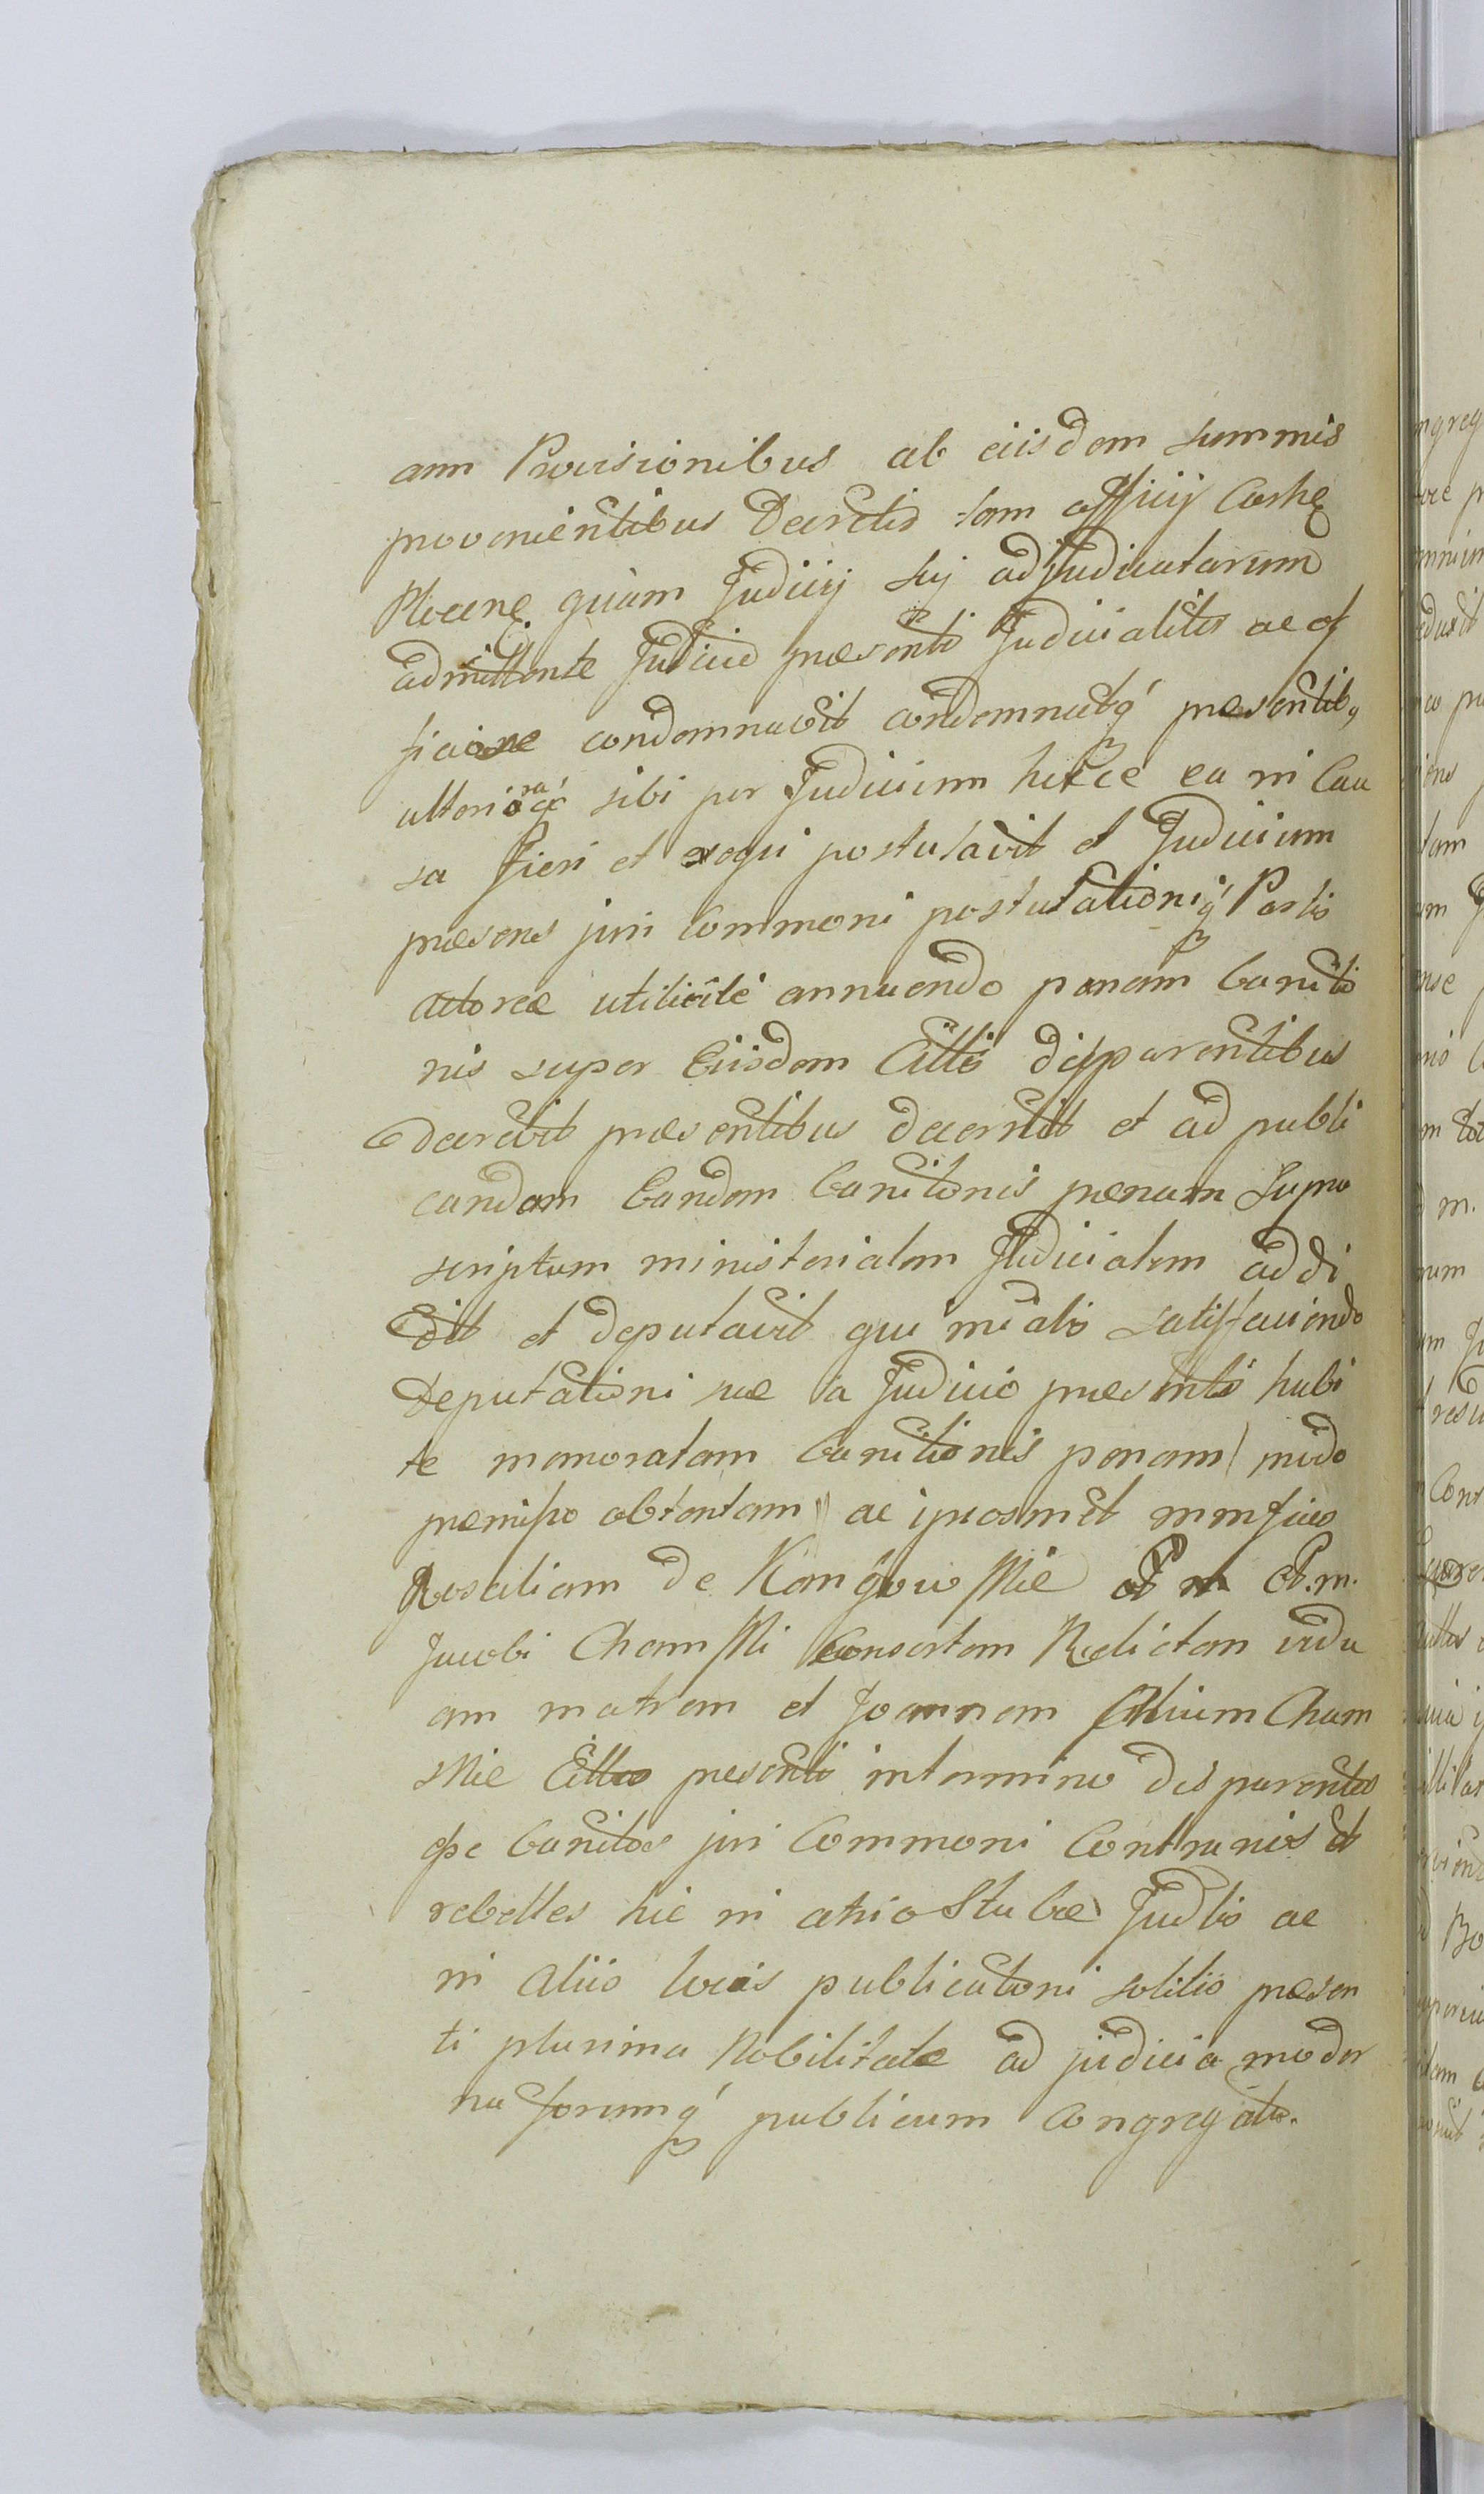 ann Provisionibus ab eiisdem summis
provenientibus Decretis tam officij Castrę
Plocenę quàm Judicij sui adjudicatarum
admittente Judicio præsenti Judicialiter ac of
ficiose condemnavit condemnatq́ præsentibꝯ
ulterioraq́ sibi per Judicium hicce ea in Cau
sa fieri et exequi postulavit et Judicium
præsens juri Commoni postulationiq́ Partis
Actoreæ utilicite annuendo pœnam banitio
nis super Eiisdem Cittis disparentibus
decrevit præsentibus decernit et ad publi
candam Eandem banitionis pœnam supra
scriptum ministerialem Judicialem addi
dit et deputavit qui mialis satisfaciendo
Deputationi suæ a Judicio præsenti habi
te memoratam banitionis pœnam modo
præmisso obtentam ac ipsosmet mmficos
Rosaliam de Komgowskie et m.
Jacobi Chamski Consortem Relictam vidu
am matrem et Joannem filium Cham
skie Cittos presenti intermino disparentes
qße banitos juri Commoni Contrarios et
rebelles hic in atrio Stubæ Judlis ac
in aliis locis publicationi solitis præsen
ti plurima Nobilitate ad judicia moder
na forumq́ publicum Congregata.